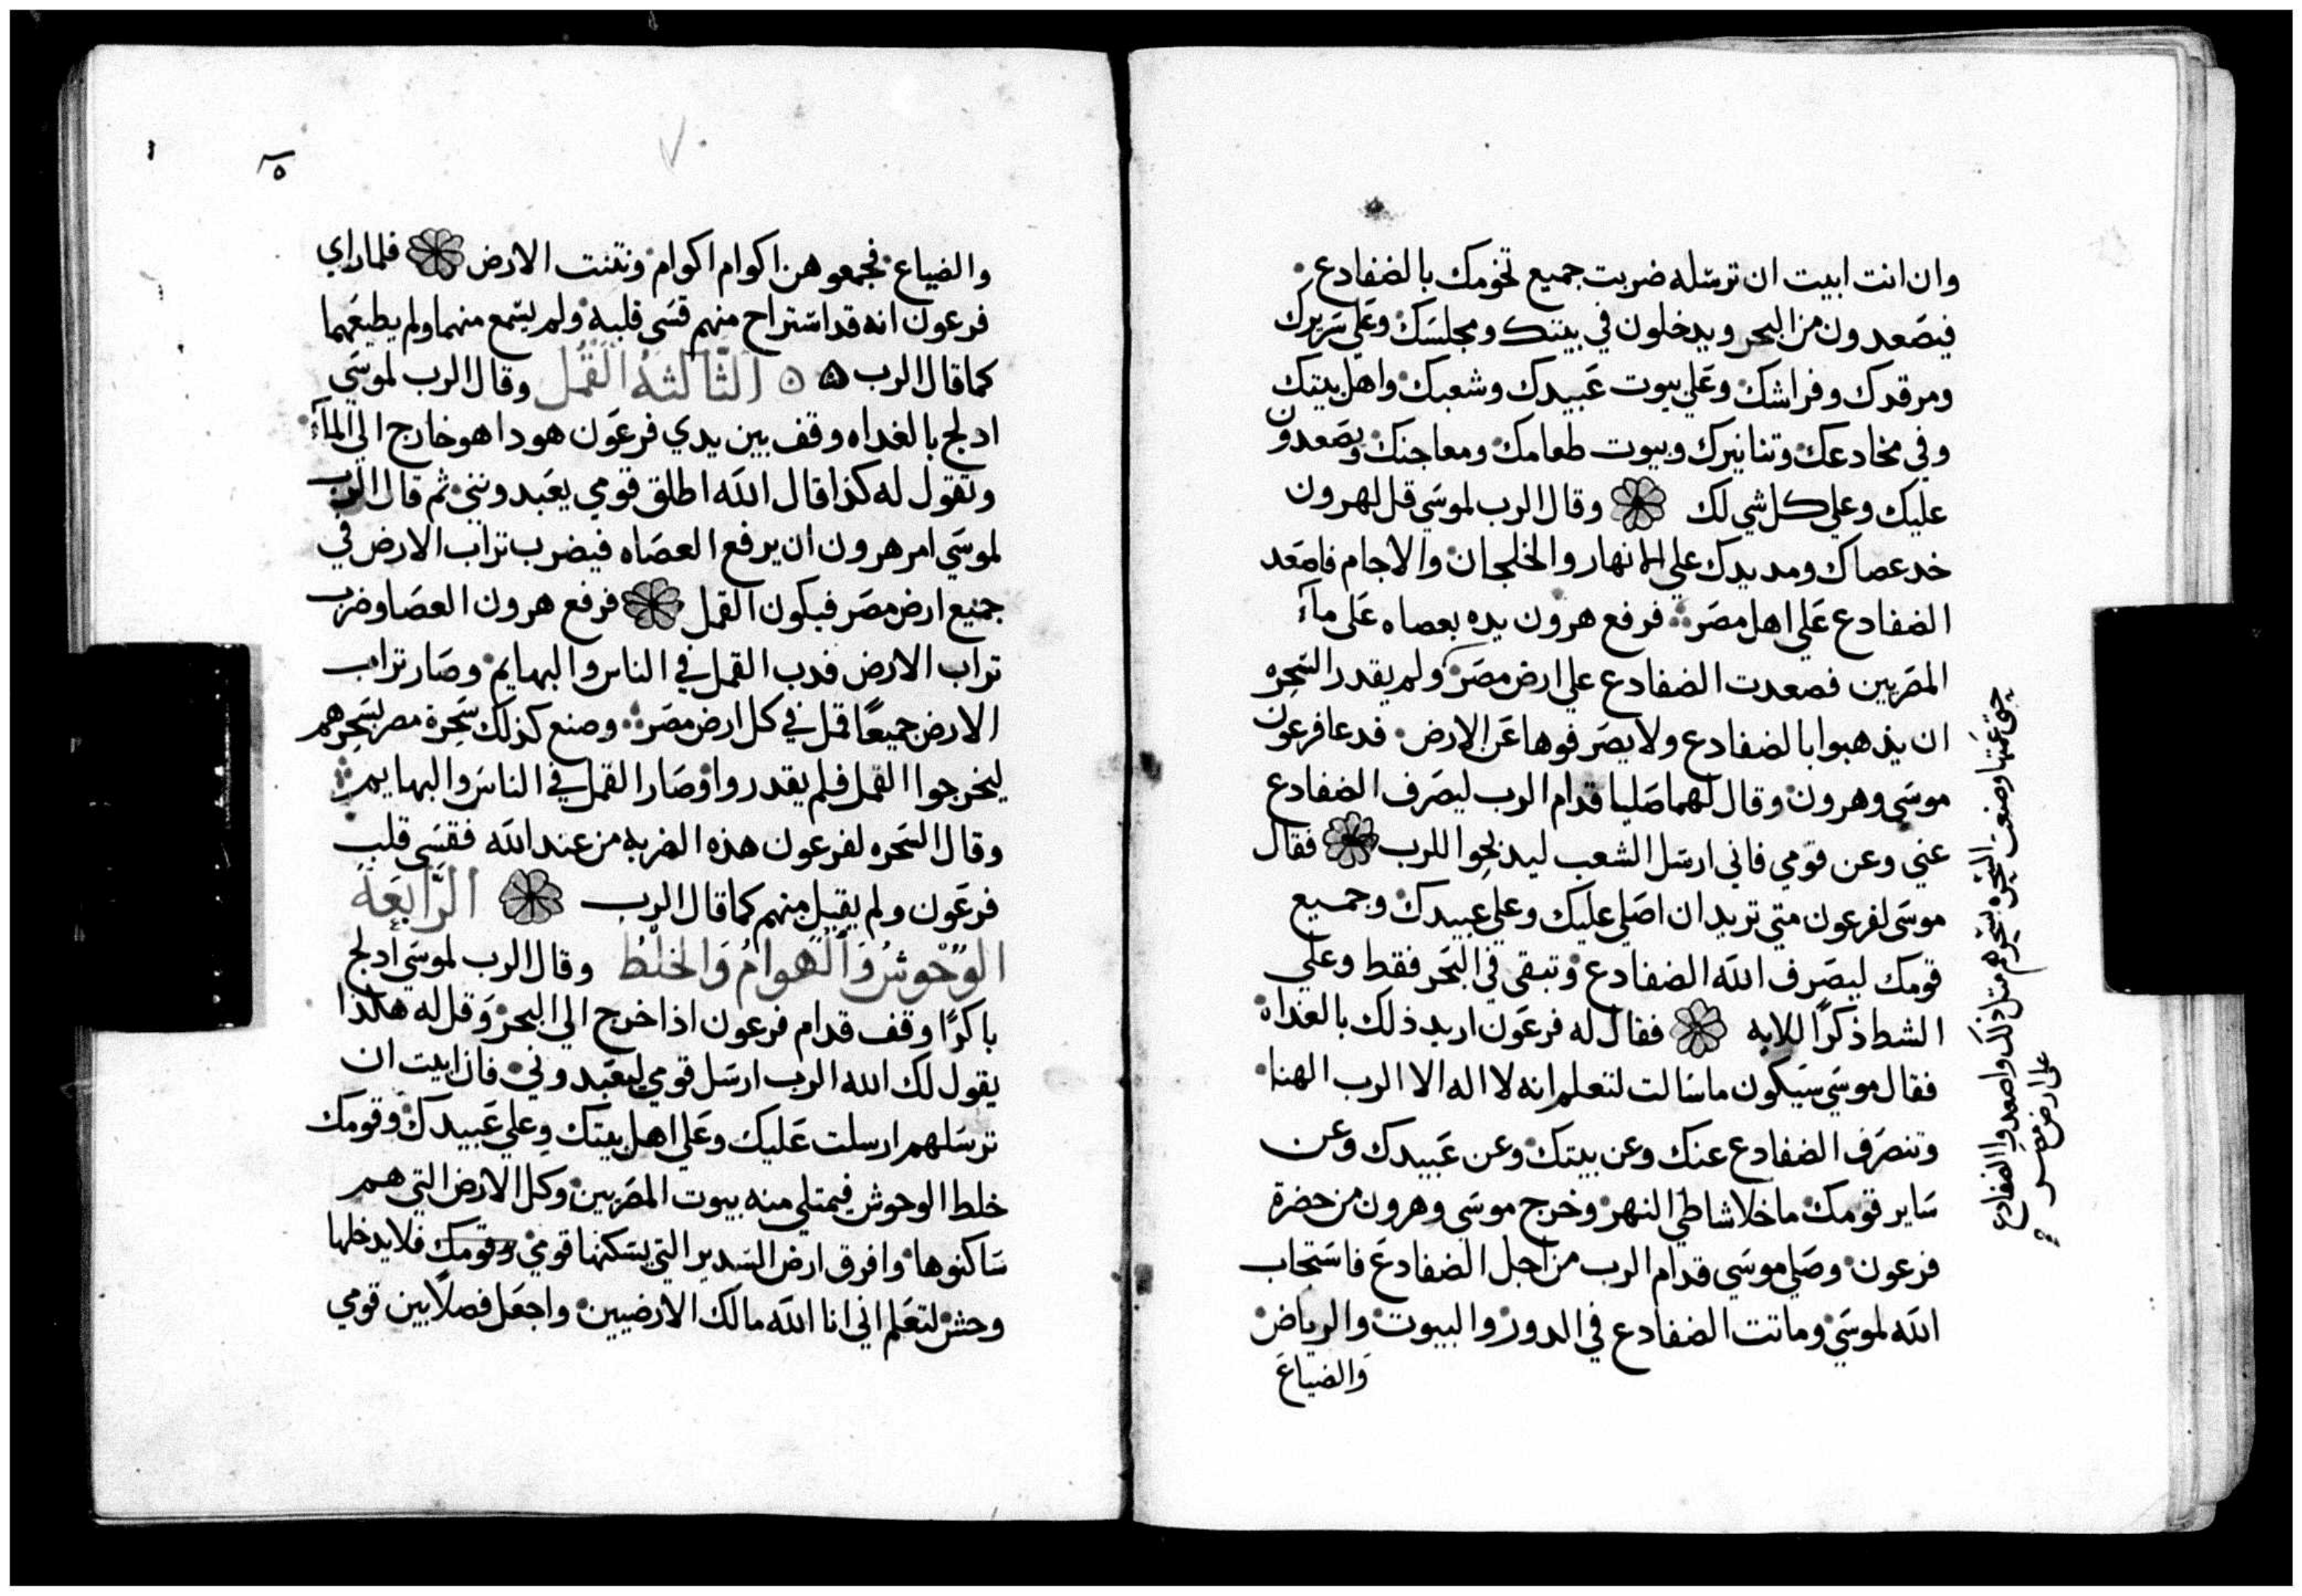 وان انت ابيت ان ترسله ضربت جميع تخومك بالضفادع
فيصعدون من البحر ويدخلون في بيتك ومجلسك وعلي سريرك
ومرقدك وفراشك وعلي بيوت عبيدك وشعبك واهل بيتك
وفي مخادعك وتنانيرك وبيوت طعامك ومعاجنك ويصعدون
عليك وعلي كل شي لك وقال الرب لموسي قل لهرون
خد عصاك ومد يدك علي الانهار والخلجان والاجام فاصعد
الضفادع علي اهل مصر فرفع هرون يده بعصاه علي مآء
المصريين فصعدت الضفادع علي ارض مصر ولم يقدر السحره
ان يذهبوا بالضفادع ولا يصرفوها عن الارض فدعا فرعون
موسي وهرون وقال لهما صليا قدام الرب ليصرف الضفادع
عني وعن قومي فاني ارسل الشعب ليدبحوا للرب فقال
موسي لفرعون متي تريد ان اصلي عليك وعلي عبيدك وجميع
قومك ليصرف الله الضفادع وتبقي في البحر فقط وعلي
الشط ذكرًا للابه فقال له فرعون اريد ذلك بالغداه
فقال موسي سيكون ما سالت لتعلم انه لا اله الا الرب الهنا
وتنصرف الضفادع عنك وعن بيتك وعن عبيدك وعن
ساير قومك ما خلا شاطي النهر وخرج موسي وهرون من حضرة
فرعون وصلي موسي قدام الرب من اجل الضفادع فاستجاب
الله لموسي وماتت الضفادع في الدور والبيوت والرياض
والضياع
حتي غمتها وصنعت السحره بسحرهم مثل ذلك واصعدوا الضفادع
علي ارض مصر
والضياع فجمعوهن اكوام اكوام ونتنت الارض فلما راي
فرعون انه قد استراح منهم قسي قلبه ولم يسمع منهما ولم يطيعهما
كما قال الرب الثالثة القمل وقال الرب لموسي
ادلج بالغداه وقف بين يدي فرعون هودا هو خارج الي المآء
وتقول له كذا قال الله اطلق قومي يعبدونني ثم قال الرب
لموسي امر هرون ان يرفع العصاه فيضرب تراب الارض في
جميع ارض مصر فيكون القمل فرفع هرون العصا وضرب
تراب الارض فدب القمل في الناس والبهايم وصار تراب
الارض جميعًا قمل في كل ارض مصر وصنع كذلك سحرة مصر بسحرهم
ليخرجوا القمل فلم يقدروا وصار القمل في الناس والبهايم
وقال السحره لفرعون هذه الضربه من عند الله فقسي قلب
فرعون ولم يقبل منهم كما قال الرب الرابعة
الوحوش والهوام والخلط وقال الرب لموسي ادلج
باكرًا وقف قدام فرعون اذا خرج الي البحر وقل له هاكذا
يقول لك الله الرب ارسل قومي ليعبدوني فان ابيت ان
ترسلهم ارسلت عليك وعلي اهل بيتك وعلي عبيدك وقومك
خلط الوحوش فيمتلي منه بيوت المصريين وكل الارض التي هم
ساكنوها وافرق ارض السدير التي يسكنها قومي وقومك فلا يدخلها
وحش لتعلم اني انا الله مالك الارضيين واجعل فصلًا بين قومي